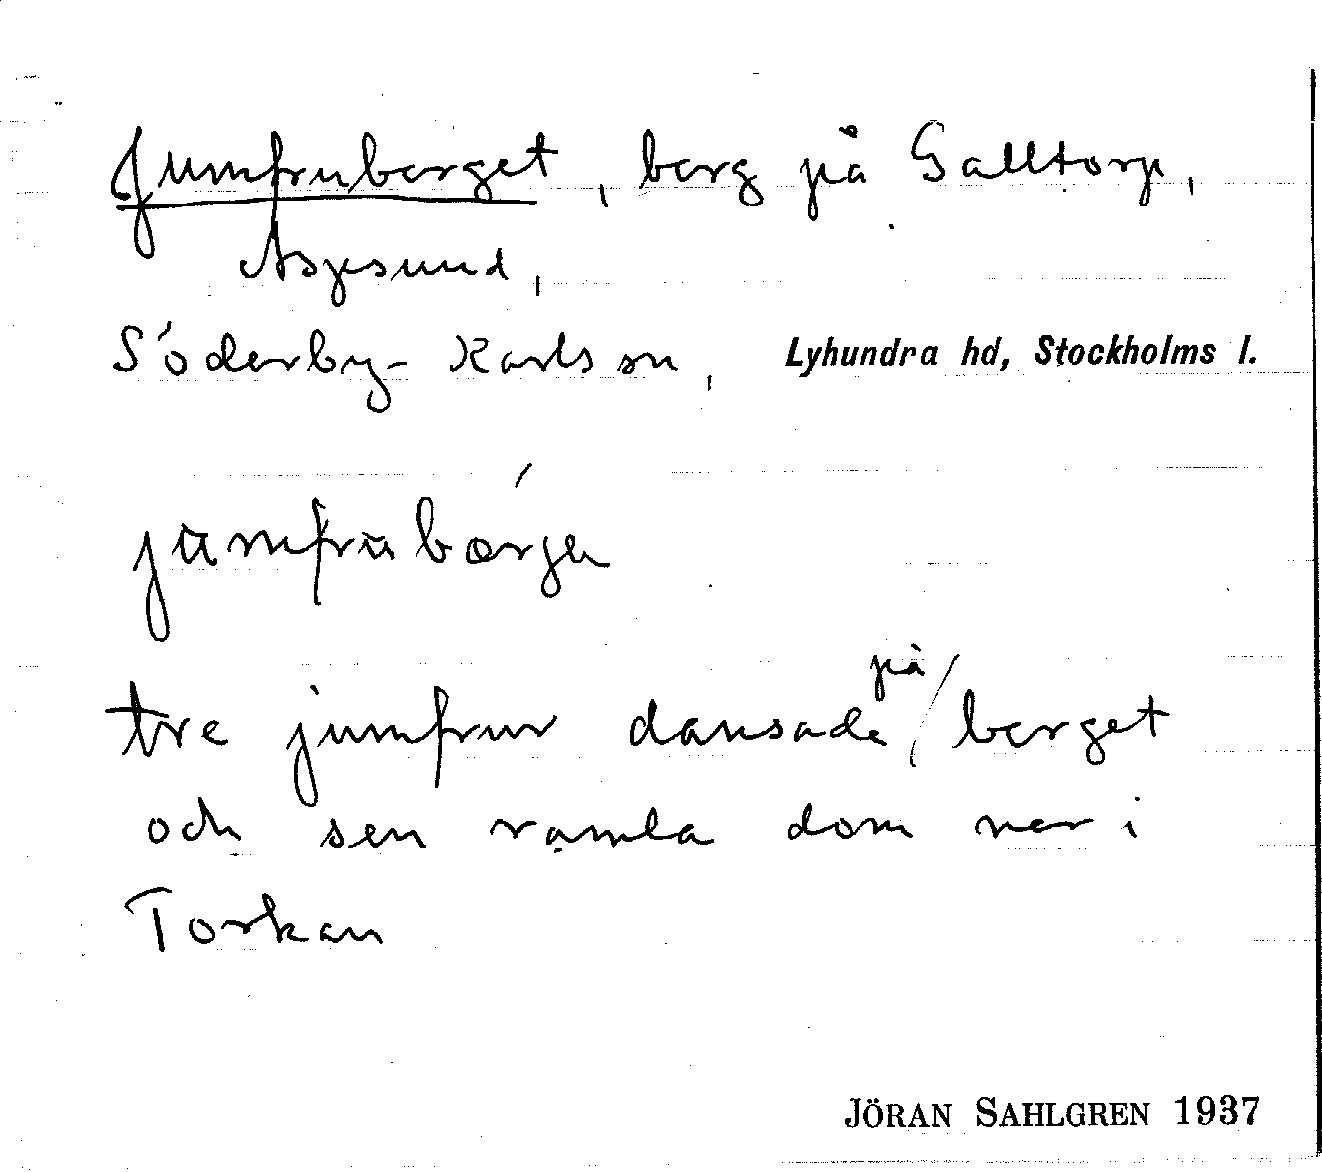 Jumfruberget, berg på Galltorp,
Aspsund,
Söderby-Karlsson, Lyhundra hd, Stockholms l.
jumfrubærje
tre jumfrur dansade på berget
och sen ramla dom ner i
Torkan
JÖRAN SAHLGREN 1937